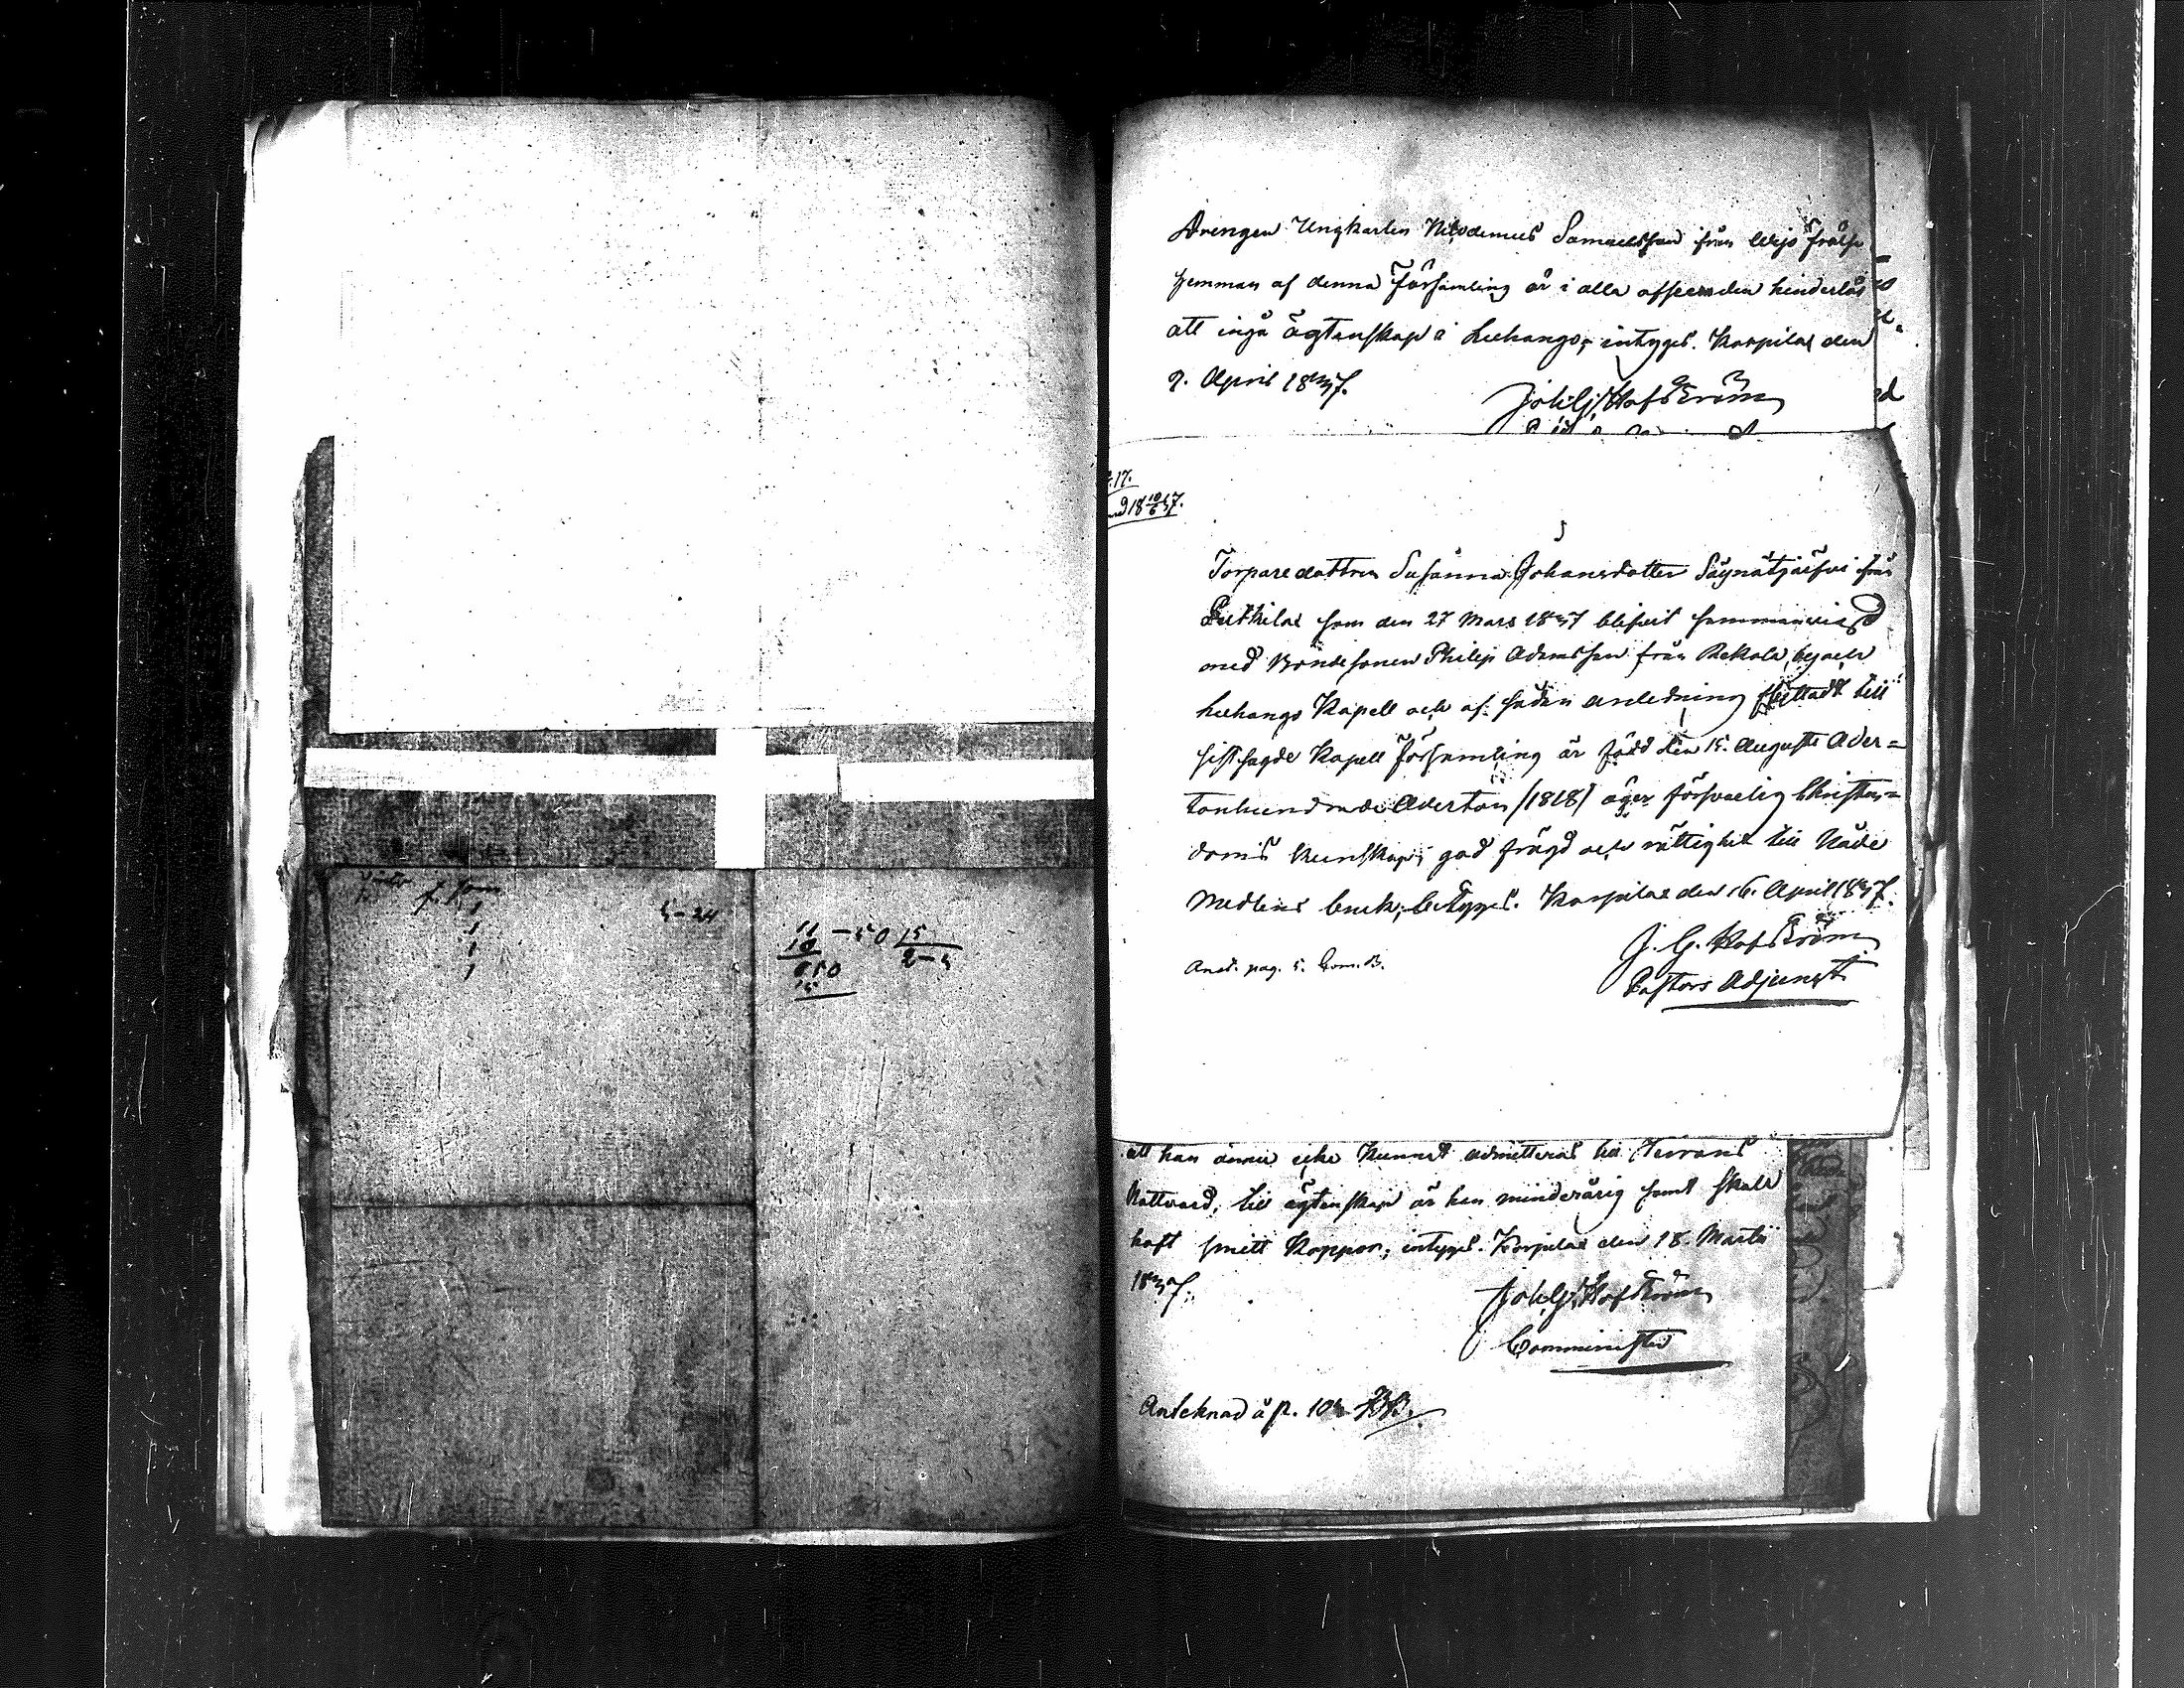 5-24
11 - 50 15
10 2-5
Drengen Ungkarlen Nicodemus Samuelsson från frälse
hemman af denna Församling är i alla afseenden hinderlös
att ingå ägtenskap i Luhango, intygas. Korpilax den
April 1837.
Joh. G. Hofström
.17.
18 10/6 37.
Torpare dottren Susanna Johansdotter Säynätjärfvi från
Putkilax som den 27 Mars 1837 blifvit sammanvigd
med Bondesonen Philip Adamsson från Rekola by och
Luhango Kapell och af sådan anledning flyttadt till
sistsagde Kapell Församling är född den 15. Augusti Ader=
tonhundrade Aderton /1818/ äger försvarlig Christen=
doms kunskap, god frägd och rättighet till Nåde
Medlens bruk, betygas. Korpilax den 16. April 1837.
J. G. Hofström
Pastors Adjunct
Anot. pag. 5. Com. B.
att han ännu icke kunnat admitteras till Herrans
Nattvard, till ägtenskap är han minderårig samt skall
haft smitt Koppor, intygas. Korpilax den 18. Martii
1837.
Joh. G. Hofström
Comminister
Anteknad å p.